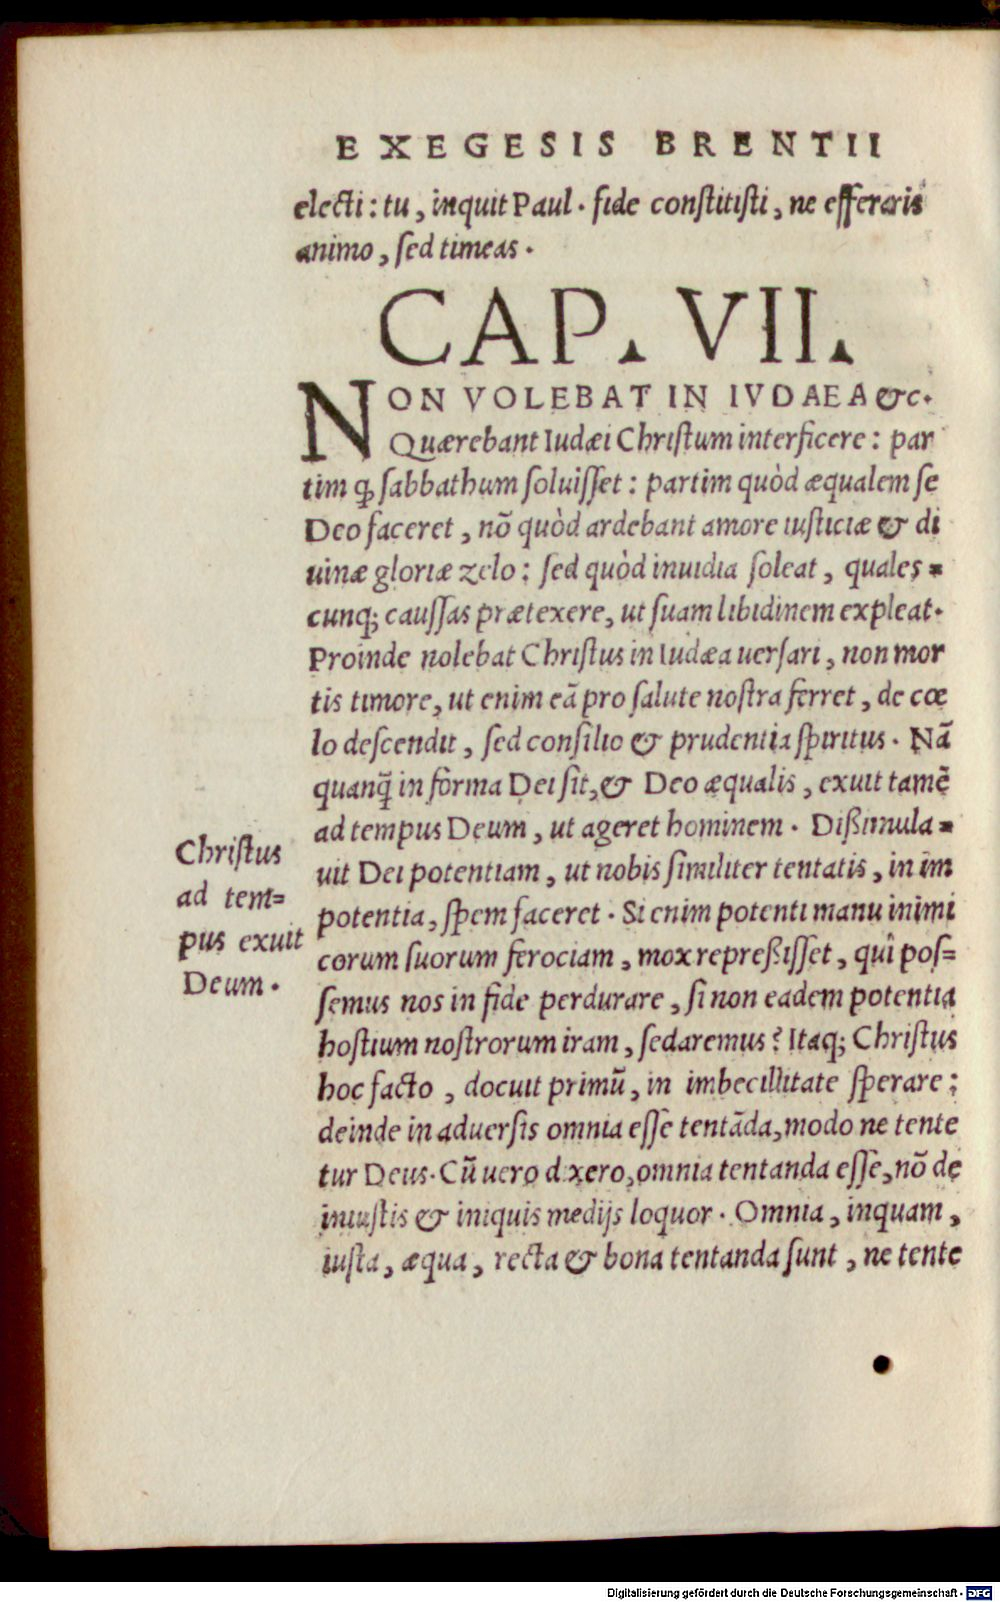 EXEGESIS BRENTII
electi: tu, inquit Paul. fide constitisti, ne efferaris
animo, sed timeas.
CAP. VII.
NON VOLEBAT IN IVDAEA &c.
Quærebant Iudæi Christum interficere: par
tim ꝙ sabbathum soluisset: partim quòd æqualem se
Deo faceret, nõ quòd ardebant amore iusticiæ & di
uinæ gloriæ zelo: sed quòd inuidia soleat, quales=
cunq; caussas prætexere, ut suam libidinem expleat.
Proinde nolebat Christus in Iudæa uersari, non mor
tis timore, ut enim eã pro salute nostra ferret, de cœ
lo descendit, sed consilio & prudentia spiritus. Nã
quanq̃ in forma Dei sit, & Deo æqualis, exuit tamẽ
ad tempus Deum, ut ageret hominem. Dißimula=
uit Dei potentiam, ut nobis similiter tentatis, in im
potentia, spem faceret. Si enim potenti manu inimi
corum suorum ferociam, mox repreßisset, quî pos=
semus nos in fide perdurare, si non eadem potentia
hostium nostrorum iram, sedaremus? Itaq; Christus
hoc facto, docuit primũ, in imbecillitate sperare:
deinde in aduersis omnia esse tentãda, modo ne tente
tur Deus. Cũ uero dixero, omnia tentanda esse, nõ de
iniustis & iniquis medijs loquor. Omnia, inquam,
iusta, æqua, recta & bona tentanda sunt, ne tente
Christus
ad tem=
pus exuit
Deum.
Digitalisierung gefördert durch die Deutsche Forschungsgemeinschaft - DFG